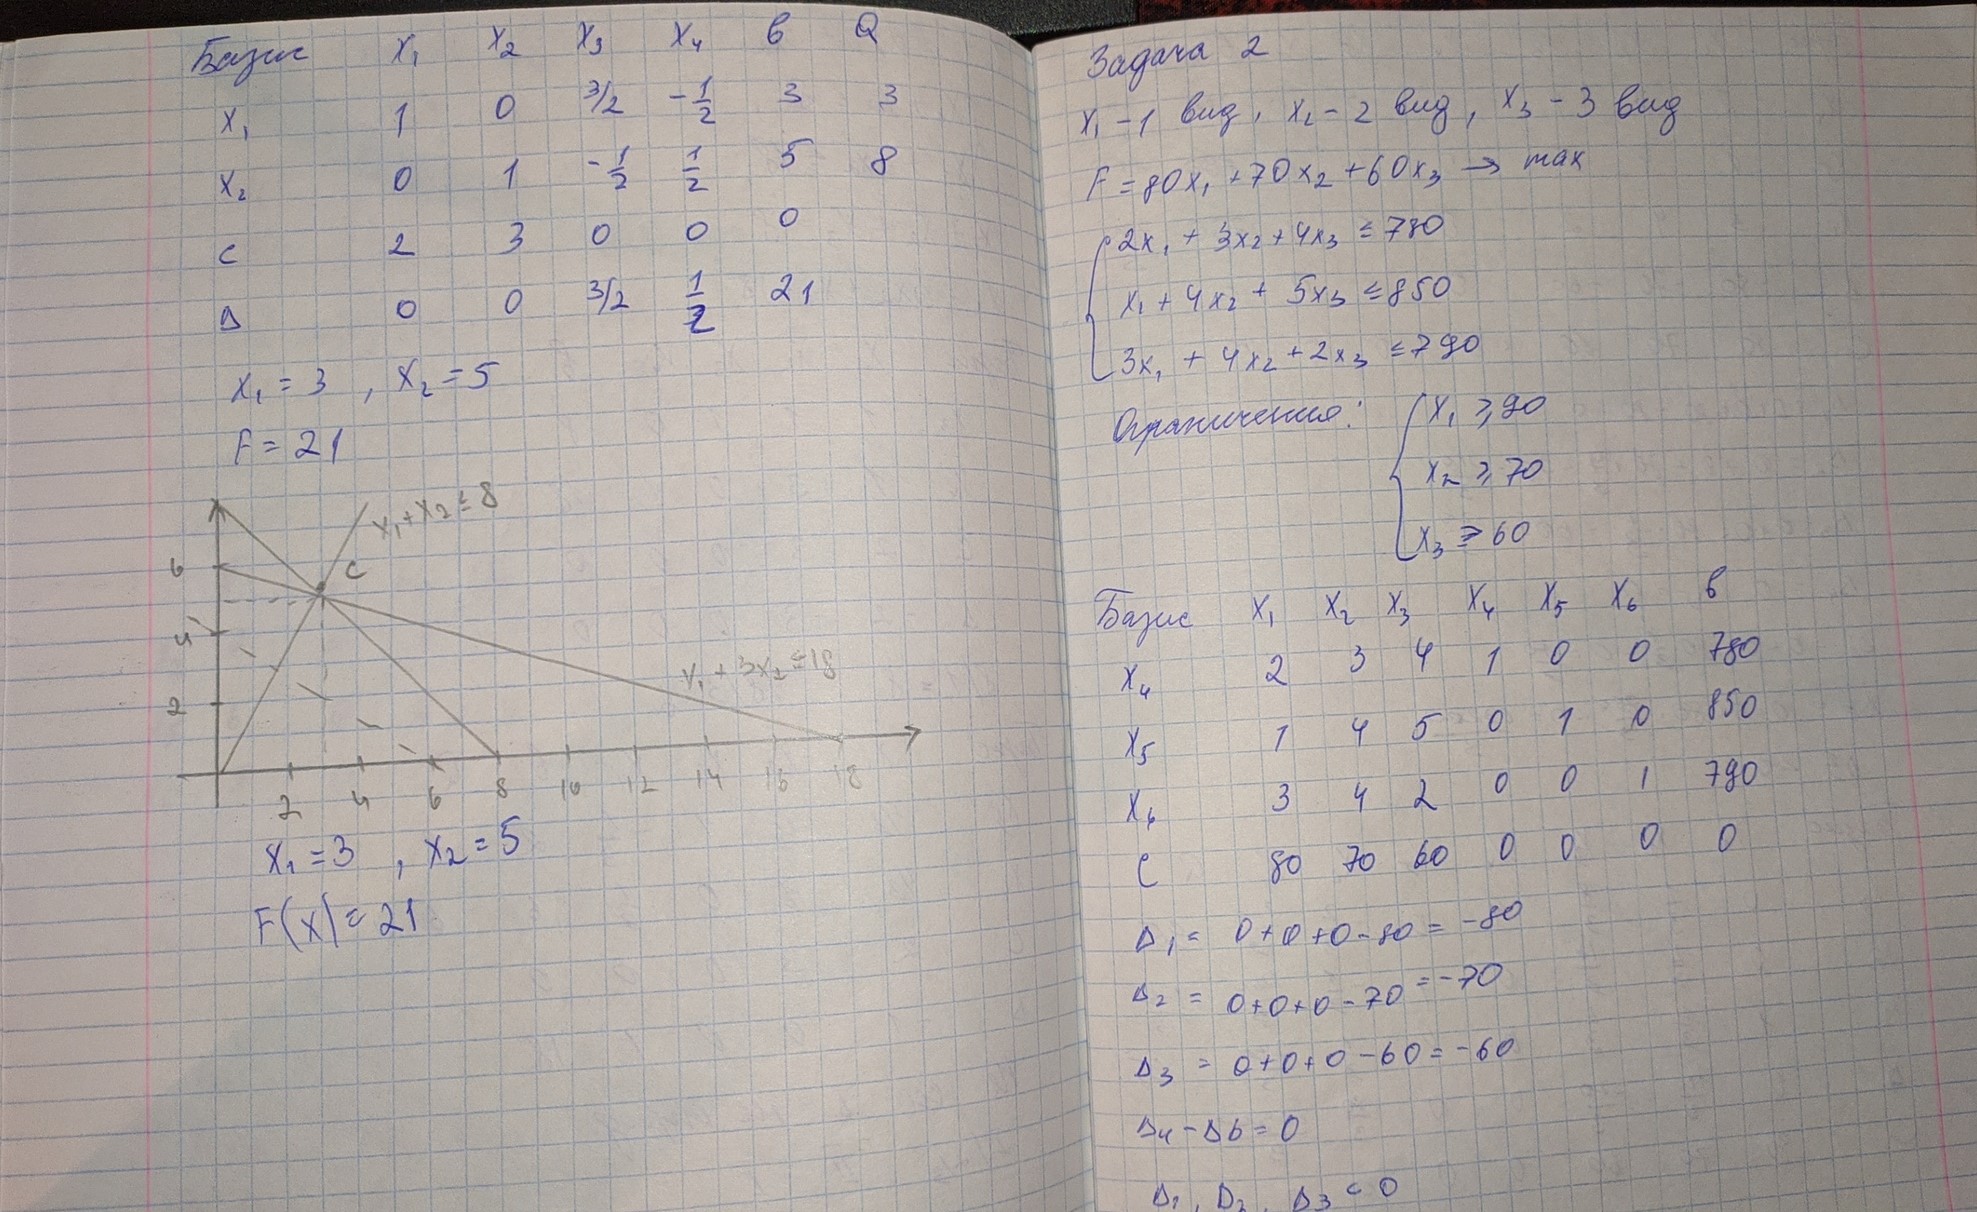 Базис x₁ x₂ x₃ x₄ в Q
x₁ 1 0 3/2 -1/2 3 3
x₂ 0 1 -1/2 1/2 5 8
c 2 3 0 0 0
Δ 0 0 3/2 1/2 21
x₁ = 3 , x₂ = 5
F = 21
x₁ + x₂ ≤ 8
6
c
4
x₁ + 3x₂ ≤ 18
2
2 4 6 8 10 12 14 16 18
x₁ = 3 , x₂ = 5
F(x) = 21
Задача 2
x₁ - 1 вид, x₂ - 2 вид, x₃ - 3 вид
F = 80x₁ + 70x₂ + 60x₃ → max
2x₁ + 3x₂ + 4x₃ ≤ 780
x₁ + 4x₂ + 5x₃ ≤ 850
3x₁ + 4x₂ + 2x₃ ≤ 790
Ограничения: x₁ ≥ 90
x₂ ≥ 70
x₃ ≥ 60
Базис x₁ x₂ x₃ x₄ x₅ x₆ в
x₄ 2 3 4 1 0 0 780
x₅ 1 4 5 0 1 0 850
x₆ 3 4 2 0 0 1 790
C 80 70 60 0 0 0 0
Δ₁ = 0+0+0-80 = -80
Δ₂ = 0+0+0-70 = -70
Δ₃ = 0+0+0-60 = -60
Δ₄ - Δ6 = 0
Δ₁, Δ₂, Δ₃ < 0